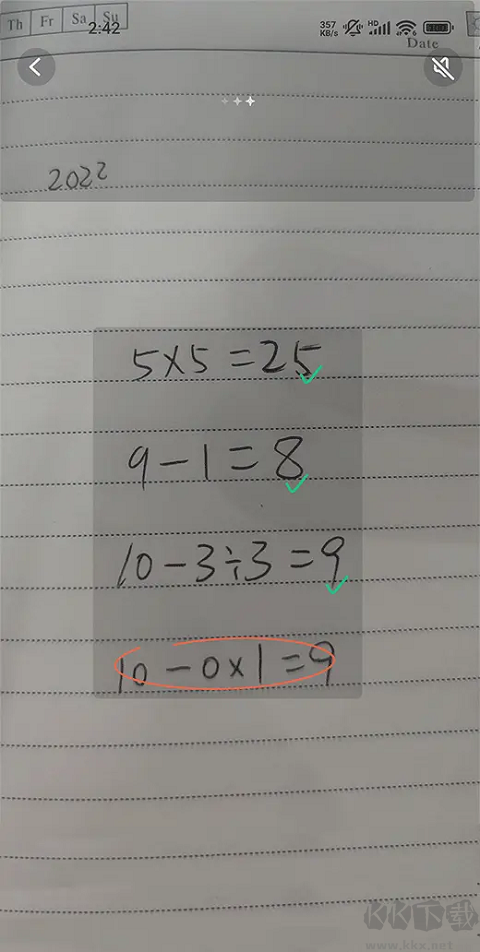 Th Fr Sa Su
2:42
357 KB/s HD 100
Date
2022
5×5=25
9-1=8
10-3÷3=9
10-0×1=9
KK下载
www.kkx.net